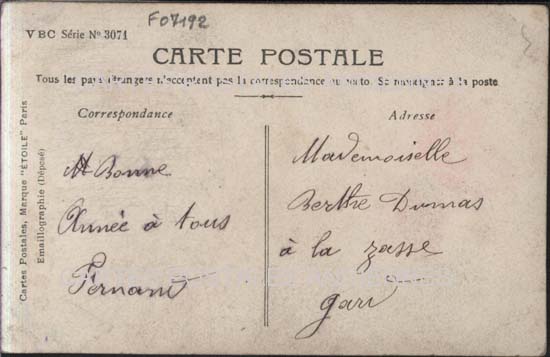 F07192
VBC Série Nº 3071
CARTE POSTALE
Tous les pays étrangers n'acceptent pas la correspondance au recto. Se renseigner à la poste
Correspondance
Adresse
Bonne
Année à tous
Fernand
Mademoiselle
Berthe Dumas
à la
gare
Cartes Postales, Marque "ÉTOILE" Paris
Emaillographie (Déposé)